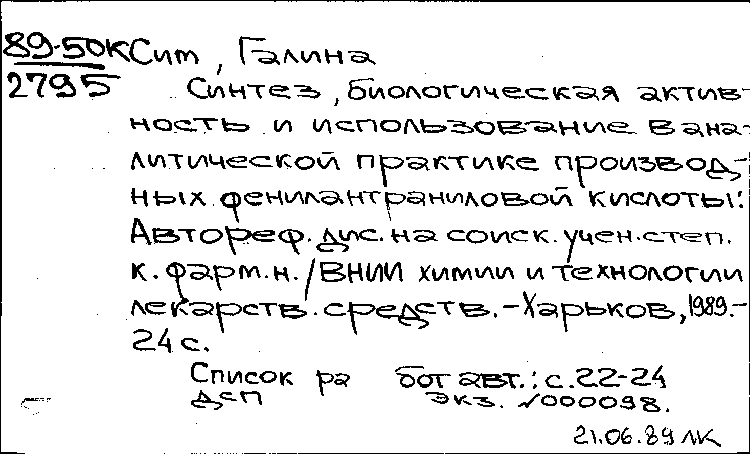 89-50К Сит, Галина
2795 Синтез, биологическая актив-
ность и использование в ана-
литической практике производ-
ных фенилантраниловой кислоты:
Автореф. дис. на соиск. учен. степ.
к. фарм. н. / ВНИИ химии и технологии
лекарств. средств. - Харьков, 1989. -
24 с.
Список ра бот авт.: с. 22-24
ДСП Экз. √000098.
21.06.89 ЛК